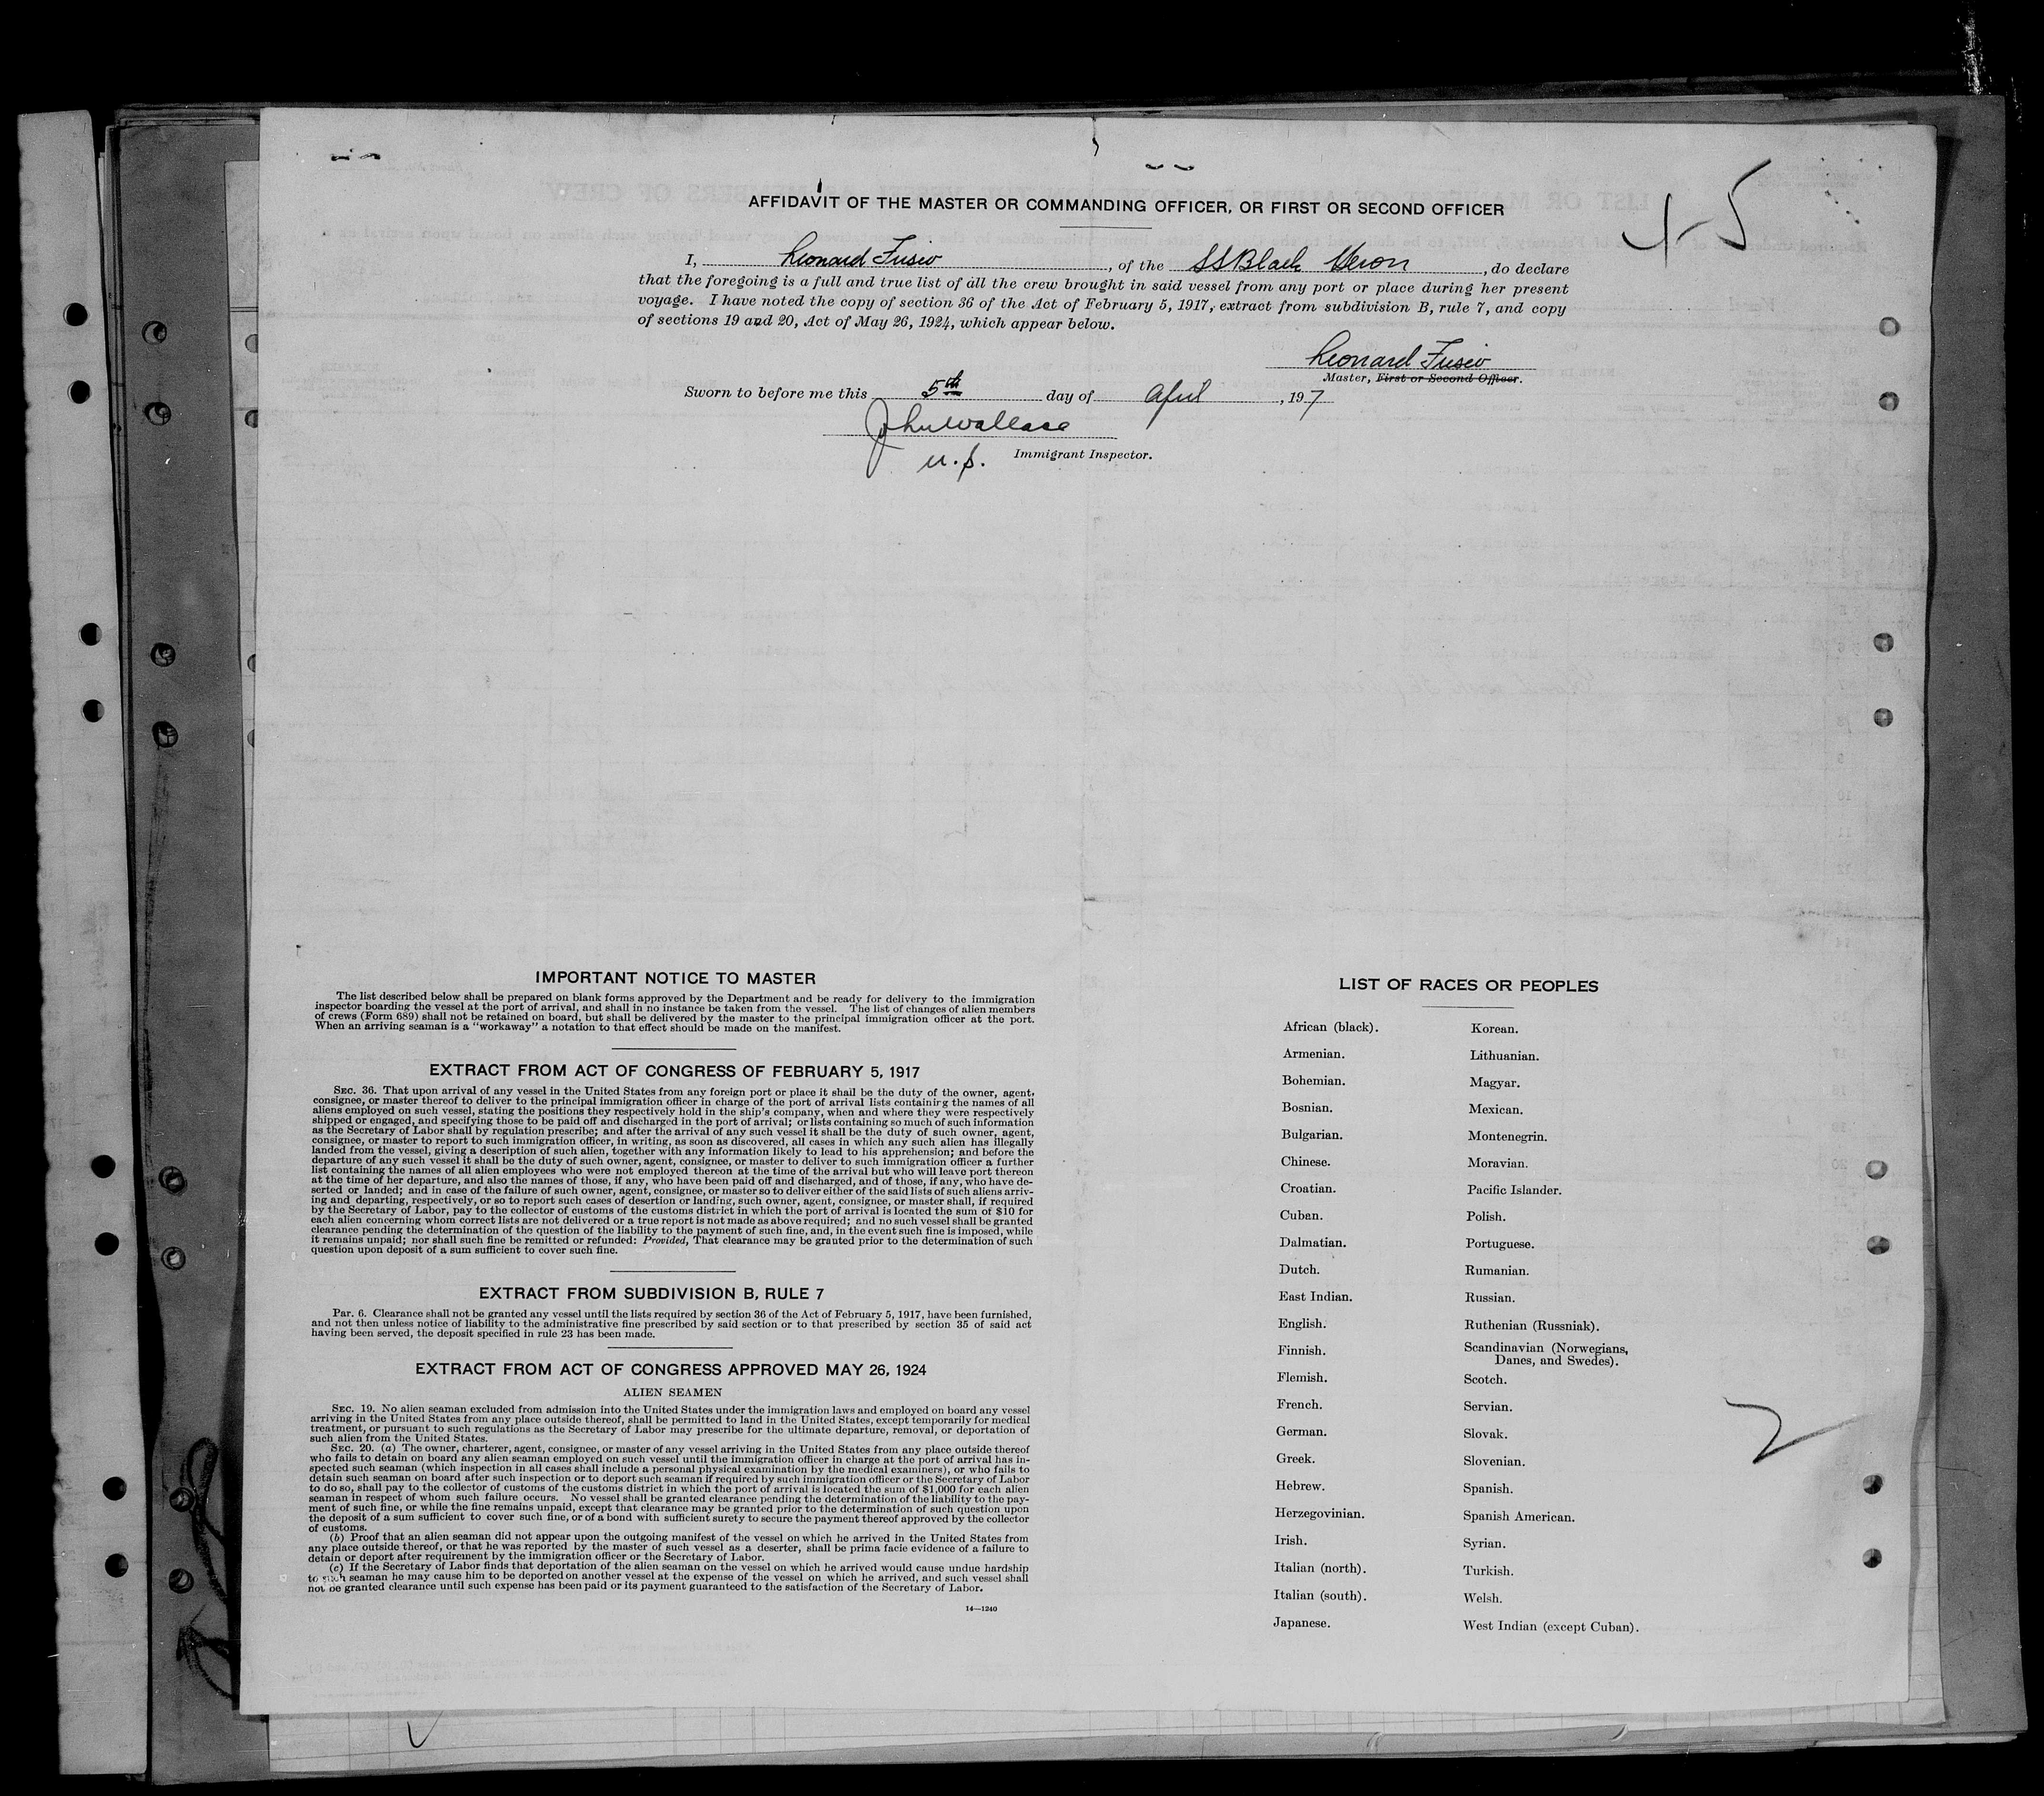 4-5
AFFIDAVIT OF THE MASTER OR COMMANDING OFFICER, OR FIRST OR SECOND OFFICER
I, Leonard Fusio, of the SS Black Heron, do declare
that the foregoing is a full and true list of all the crew brought in said vessel from any port or place during her present
voyage. I have noted the copy of section 36 of the Act of February 5, 1917, extract from subdivision B, rule 7, and copy
of sections 19 and 20, Act of May 26, 1924, which appear below.
Leonard Fusio
Master, First or Second Officer.
Sworn to before me this 5th day of April, 197
John Wallace
U.S. Immigrant Inspector.
IMPORTANT NOTICE TO MASTER
The list described below shall be prepared on blank forms approved by the Department and be ready for delivery to the immigration
inspector boarding the vessel at the port of arrival, and shall in no instance be taken from the vessel. The list of changes of alien members
of crews (Form 689) shall not be retained on board, but shall be delivered by the master to the principal immigration officer at the port.
When an arriving seaman is a "workaway" a notation to that effect should be made on the manifest.
EXTRACT FROM ACT OF CONGRESS OF FEBRUARY 5, 1917
SEC. 36. That upon arrival of any vessel in the United States from any foreign port or place it shall be the duty of the owner, agent,
consignee, or master thereof to deliver to the principal immigration officer in charge of the port of arrival lists containing the names of all
aliens employed on such vessel, stating the positions they respectively hold in the ship's company, when and where they were respectively
shipped or engaged, and specifying those to be paid off and discharged in the port of arrival; or lists containing so much of such information
as the Secretary of Labor shall by regulation prescribe; and after the arrival of any such vessel it shall be the duty of such owner, agent,
consignee, or master to report to such immigration officer, in writing, as soon as discovered, all cases in which any such alien has illegally
landed from the vessel, giving a description of such alien, together with any information likely to lead to his apprehension; and before the
departure of any such vessel it shall be the duty of such owner, agent, consignee, or master to deliver to such immigration officer a further
list containing the names of all alien employees who were not employed thereon at the time of the arrival but who will leave port thereon
at the time of her departure, and also the names of those, if any, who have been paid off and discharged, and of those, if any, who have de-
serted or landed; and in case of the failure of such owner, agent, consignee, or master so to deliver either of the said lists of such aliens arriv-
ing and departing, respectively, or so to report such cases of desertion or landing, such owner, agent, consignee, or master shall, if required
by the Secretary of Labor, pay to the collector of customs of the customs district in which the port of arrival is located the sum of $10 for
each alien concerning whom correct lists are not delivered or a true report is not made as above required; and no such vessel shall be granted
clearance pending the determination of the question of the liability to the payment of such fine, and, in the event such fine is imposed, while
it remains unpaid; nor shall such fine be remitted or refunded: Provided, That clearance may be granted prior to the determination of such
question upon deposit of a sum sufficient to cover such fine.
EXTRACT FROM SUBDIVISION B, RULE 7
Par. 6. Clearance shall not be granted any vessel until the lists required by section 36 of the Act of February 5, 1917, have been furnished,
and not then unless notice of liability to the administrative fine prescribed by said section or to that prescribed by section 35 of said act
having been served, the deposit specified in rule 23 has been made.
EXTRACT FROM ACT OF CONGRESS APPROVED MAY 26, 1924
ALIEN SEAMEN
SEC. 19. No alien seaman excluded from admission into the United States under the immigration laws and employed on board any vessel
arriving in the United States from any place outside thereof, shall be permitted to land in the United States, except temporarily for medical
treatment, or pursuant to such regulations as the Secretary of Labor may prescribe for the ultimate departure, removal, or deportation of
such alien from the United States.
SEC. 20. (a) The owner, charterer, agent, consignee, or master of any vessel arriving in the United States from any place outside thereof
who fails to detain on board any alien seaman employed on such vessel until the immigration officer in charge at the port of arrival has in-
spected such seaman (which inspection in all cases shall include a personal physical examination by the medical examiners), or who fails to
detain such seaman on board after such inspection or to deport such seaman if required by such immigration officer or the Secretary of Labor
to do so, shall pay to the collector of customs of the customs district in which the port of arrival is located the sum of $1,000 for each alien
seaman in respect of whom such failure occurs. No vessel shall be granted clearance pending the determination of the liability to the pay-
ment of such fine, or while the fine remains unpaid, except that clearance may be granted prior to the determination of such question upon
the deposit of a sum sufficient to cover such fine, or of a bond with sufficient surety to secure the payment thereof approved by the collector
of customs.
(b) Proof that an alien seaman did not appear upon the outgoing manifest of the vessel on which he arrived in the United States from
any place outside thereof, or that he was reported by the master of such vessel as a deserter, shall be prima facie evidence of a failure to
detain or deport after requirement by the immigration officer or the Secretary of Labor.
(c) If the Secretary of Labor finds that deportation of the alien seaman on the vessel on which he arrived would cause undue hardship
to such seaman he may cause him to be deported on another vessel at the expense of the vessel on which he arrived, and such vessel shall
not be granted clearance until such expense has been paid or its payment guaranteed to the satisfaction of the Secretary of Labor.
14—1240
LIST OF RACES OR PEOPLES
African (black).
Armenian.
Bohemian.
Bosnian.
Bulgarian.
Chinese.
Croatian.
Cuban.
Dalmatian.
Dutch.
East Indian.
English.
Finnish.
Flemish.
French.
German.
Greek.
Hebrew.
Herzegovinian.
Irish.
Italian (north).
Italian (south).
Japanese.
Korean.
Lithuanian.
Magyar.
Mexican.
Montenegrin.
Moravian.
Pacific Islander.
Polish.
Portuguese.
Rumanian.
Russian.
Ruthenian (Russniak).
Scandinavian (Norwegians,
Danes, and Swedes).
Scotch.
Servian.
Slovak.
Slovenian.
Spanish.
Spanish American.
Syrian.
Turkish.
Welsh.
West Indian (except Cuban).
2